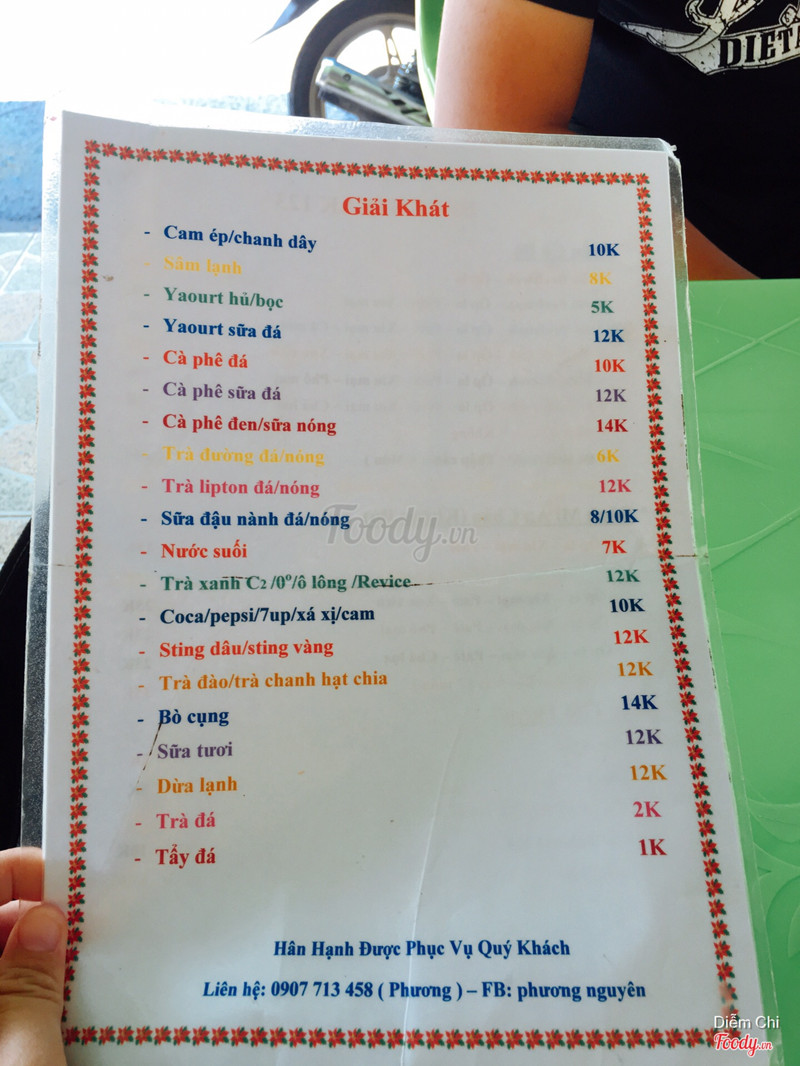 DIETA
Giải Khát
- Cam ép/chanh dây 10K
- Sâm lạnh 8K
- Yaourt hủ/bọc 5K
- Yaourt sữa đá 12K
- Cà phê đá 10K
- Cà phê sữa đá 12K
- Cà phê đen/sữa nóng 14K
- Trà đường đá/nóng 6K
- Trà lipton đá/nóng 12K
- Sữa đậu nành đá/nóng 8/10K
Foody.vn
- Nước suối 7K
- Trà xanh C2 /0º/ô lông /Revice 12K
- Coca/pepsi/7up/xá xị/cam 10K
- Sting dâu/sting vàng 12K
- Trà đào/trà chanh hạt chia 12K
- Bò cụng 14K
- Sữa tươi 12K
- Dừa lạnh 12K
- Trà đá 2K
- Tẩy đá 1K
Hân Hạnh Được Phục Vụ Quý Khách
Liên hệ: 0907 713 458 ( Phương ) – FB: phương nguyên
Diễm Chi
Foody.vn